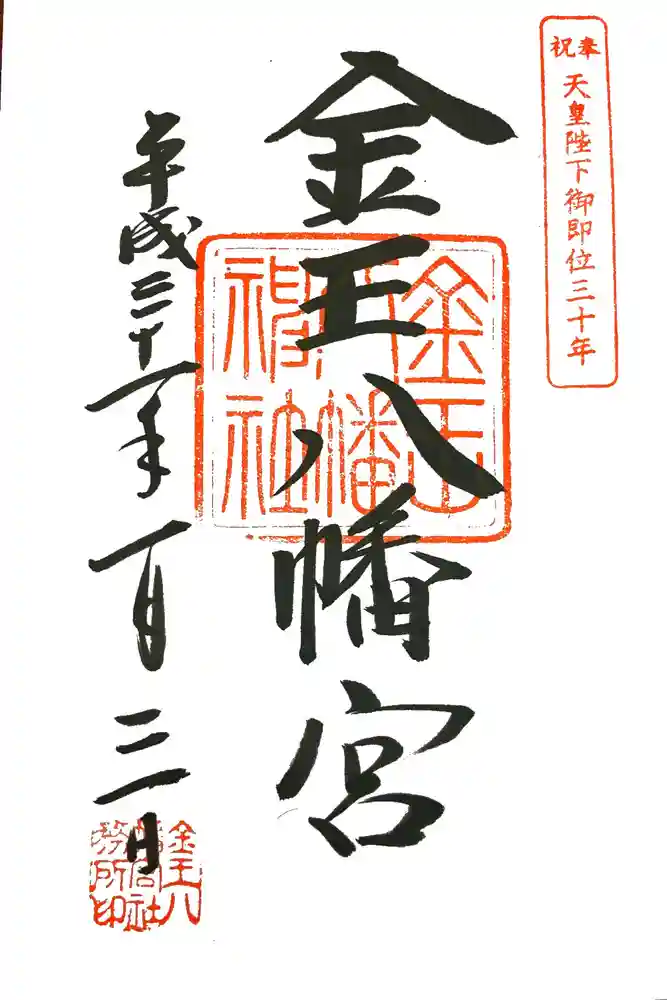 奉祝
天皇陛下御即位三十年
金王八幡宮
金王
八幡
神社
平成三十一年一月三日
金王八
幡宮社
務所印